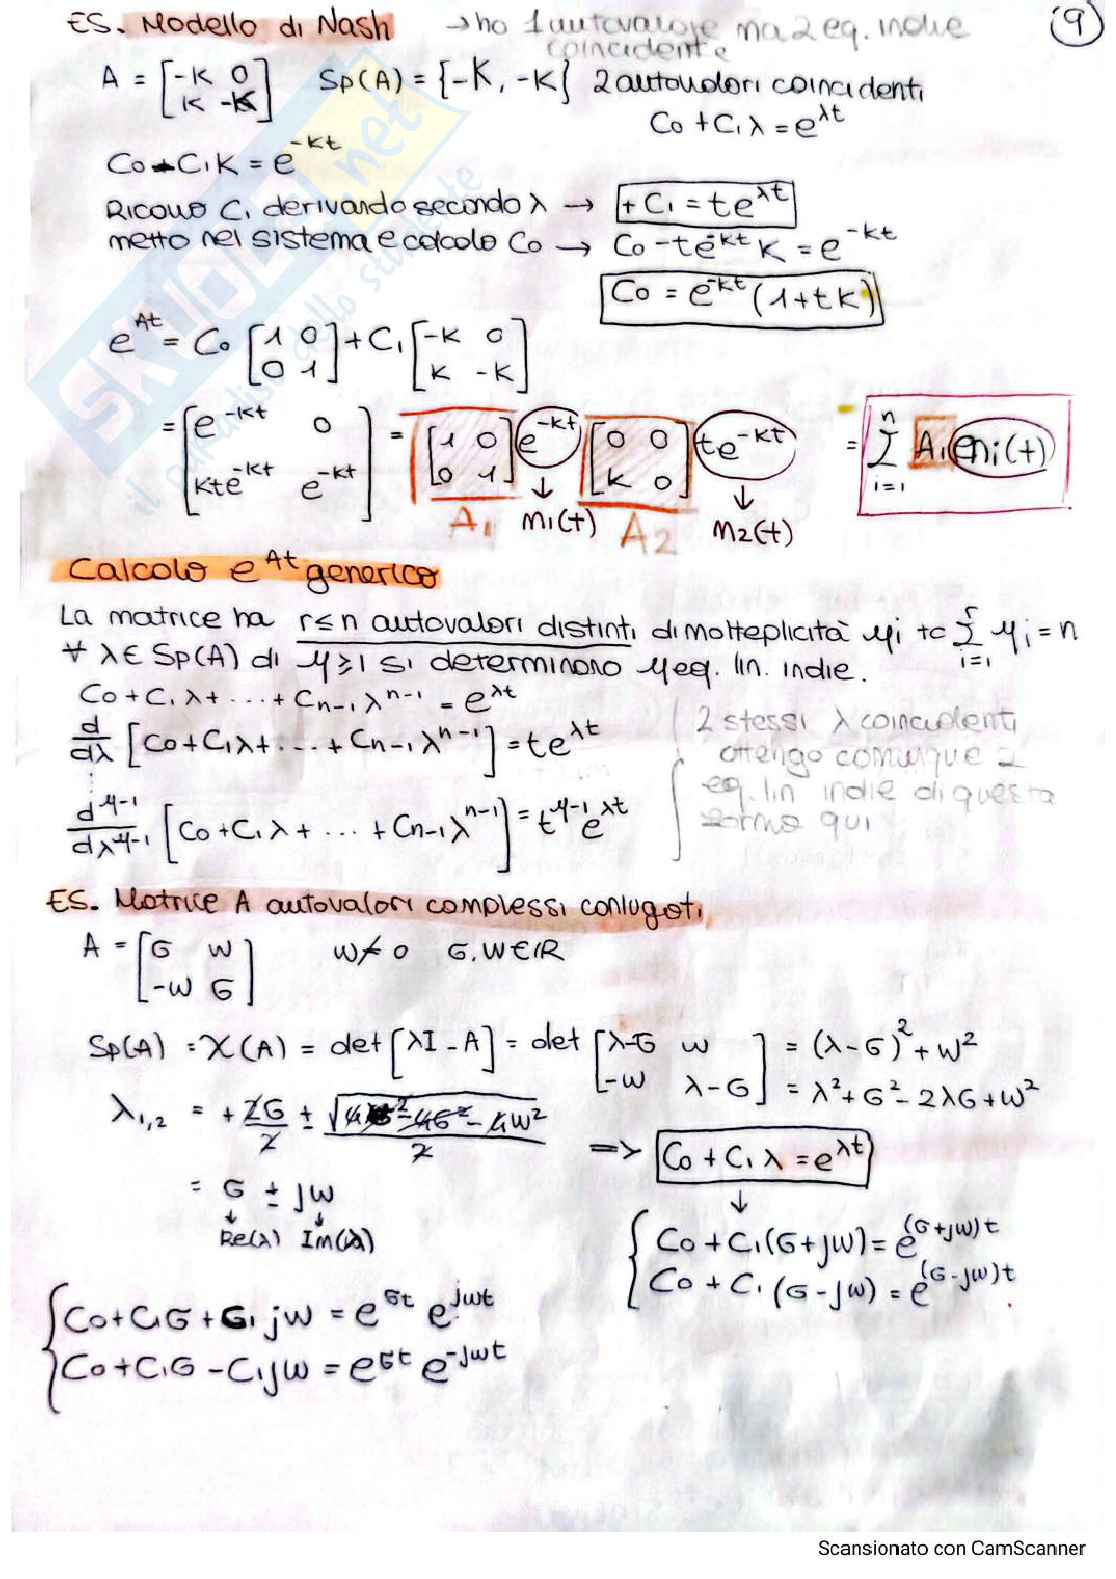 ES. Modello di Nash → ho 1 autovalore ma 2 eq. indie
coincidente
9
A = [-K 0; K -K] Sp(A) = {-K, -K} 2 autovalori coincidenti
C0 + C1λ = e^{λt}
C0 - C1K = e^{-Kt}
Ricavo C1 derivando secondo λ → +C1 = te^{λt}
metto nel sistema e calcolo C0 → C0 - te^{-kt} K = e^{-kt}
C0 = e^{-kt} (1+tK)
e^{At} = C0 [1 0; 0 1] + C1 [-K 0; K -K]
= [e^{-kt} 0; Kte^{-kt} e^{-kt}] = [1 0; 0 1] e^{-kt} [0 0; K 0] te^{-kt} = Σ_{i=1}^{n} Ai mi(t)
A1 m1(t) A2 m2(t)
Calcolo e^{At} generico
La matrice ha r≤n autovalori distinti di molteplicità μi tc Σ_{i=1}^{r} μi = n
∀ λ∈Sp(A) di μ≥1 si determinano μ eq. lin. indie.
C0 + C1λ + ... + Cn-1 λ^{n-1} = e^{λt}
d/dλ [C0 + C1λ + ... + Cn-1 λ^{n-1}] = te^{λt}
⋮
d^{μ-1}/dλ^{μ-1} [C0 + C1λ + ... + Cn-1 λ^{n-1}] = t^{μ-1} e^{λt}
2 stessi λ coincidenti
ottengo comunque 2
eq. lin indie di questa
forma qui
ES. Matrice A autovalori complessi coniugati
A = [σ ω; -ω σ] ω ≠ 0 σ, ω ∈ ℝ
Sp(A) = χ(A) = det[λI - A] = det [λ-σ ω; -ω λ-σ] = (λ-σ)² + ω²
= λ² + σ² - 2λσ + ω²
λ1,2 = + 2σ/2 ± √(4σ² - 4σ² - 4ω²)/2
=> C0 + C1λ = e^{λt}
= σ ± jω
↓ ↓
Re(λ) Im(λ)
↓
{ C0 + C1(σ+jω) = e^{(σ+jω)t}
C0 + C1(σ-jω) = e^{(σ-jω)t}
{ C0 + C1σ + C1jω = e^{σt} e^{jωt}
C0 + C1σ - C1jω = e^{σt} e^{-jωt}
SKUOLA.net
il paradiso dello studente
Scansionato con CamScanner